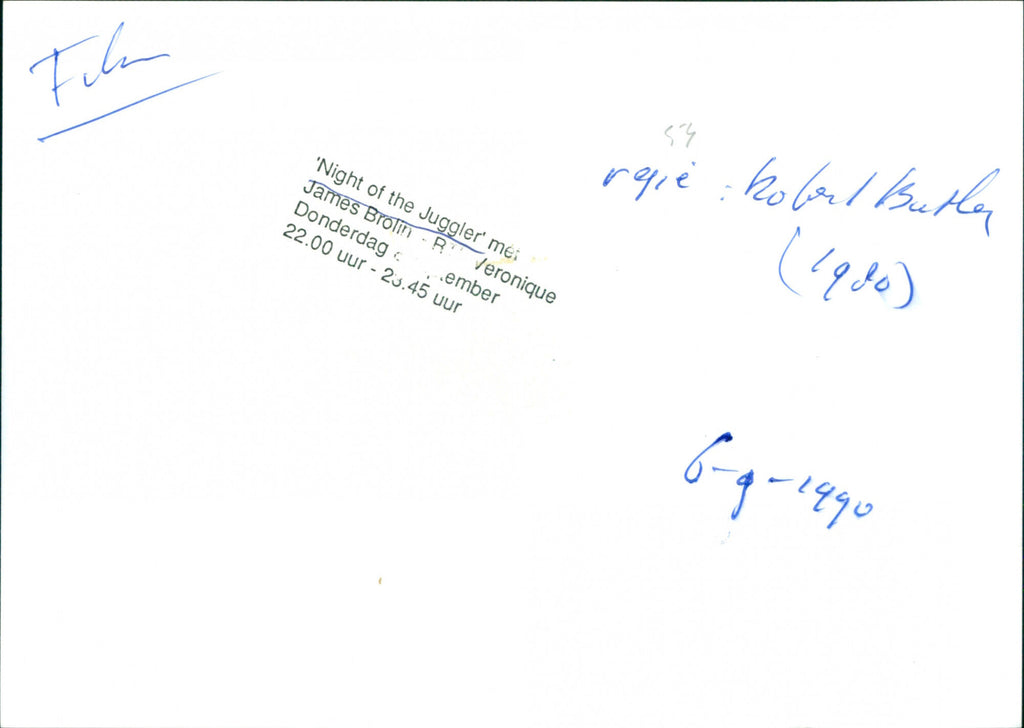 Film
54
regie : Robert Butler
(1980)
'Night of the Juggler' met
James Brolin - Veronique
Donderdag ember
22.00 uur - 23.45 uur
6-9-1990